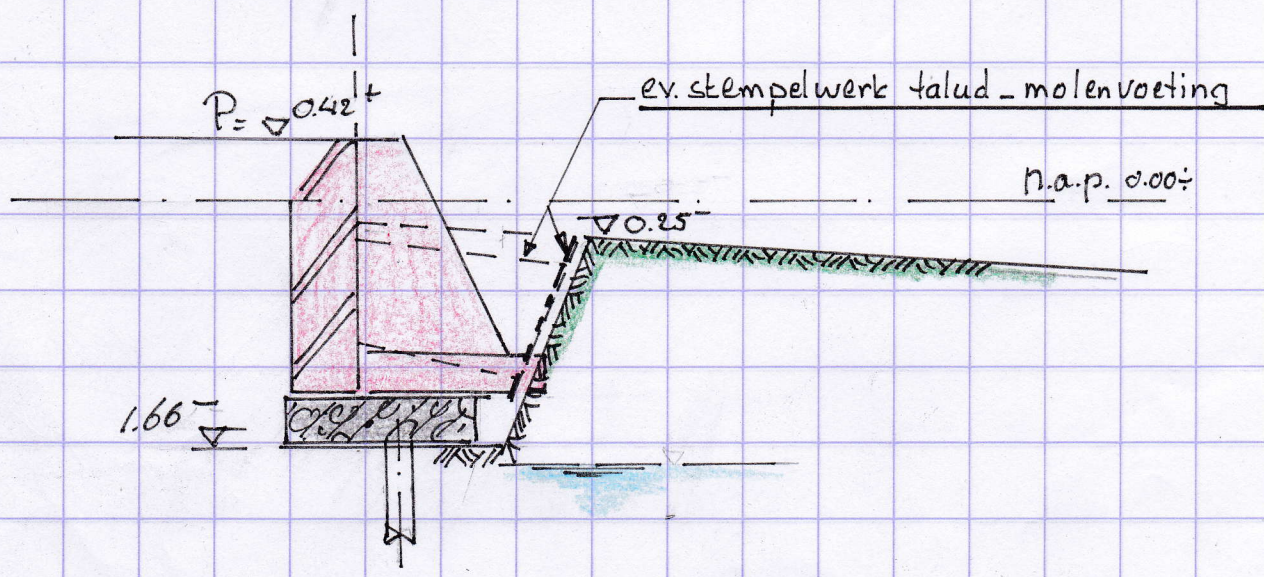 ev. stempelwerk talud - molenvoeting
P= 0.42+
n.a.p. 0.00÷
0.25-
1.66-